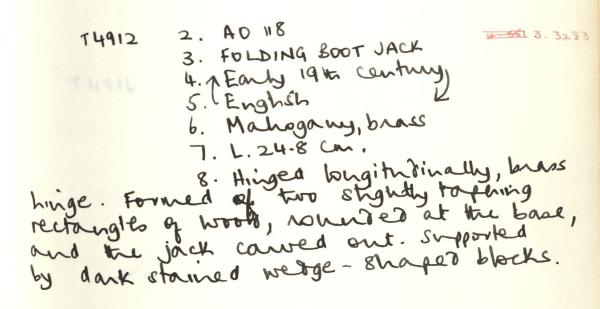 T4912 2. AO 118
3. FOLDING BOOT JACK 3.3283
4. Early 19th century
5. English
6. Mahogany, brass
7. L. 24.8 cm.
8. Hinged longitudinally, brass
hinge. Formed of two slightly tapering
rectangles of wood, rounded at the base,
and the jack carved out. Supported
by dark stained wedge-shaped blocks.